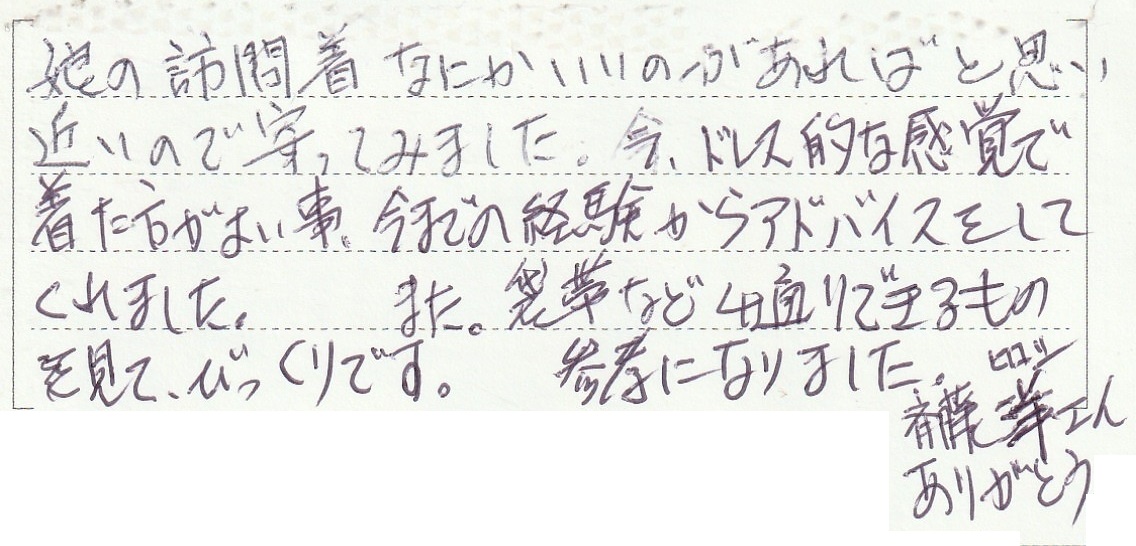 娘の訪問着なにかいいのがあればと思い
近いので寄ってみました。今、ドレス的な感覚で
着た方がよい事、今までの経験からアドバイスをして
くれました。 また。袋帯など4通りできるもの
を見て、びっくりです。 参考になりました。
ヒロシ
斉藤 洋さん
ありがとう